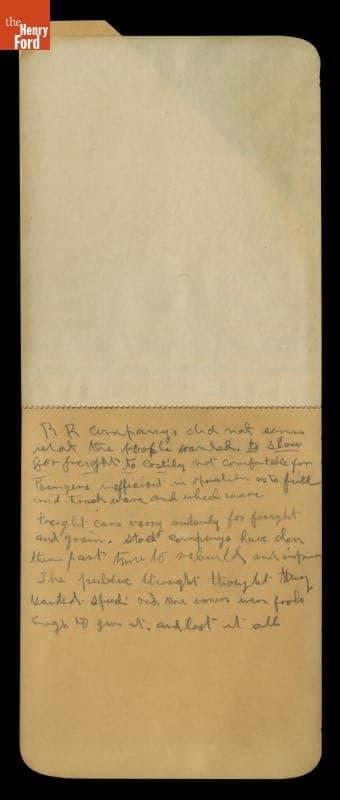 the
Henry
Ford
R R companys did not sense
what the people wanted. to slow
for freight to costly not comfortable for
inefficient in operation as to full
and track ware and wheel ware
freight cars very for freight
and grain. companys have don
their part time to rebuild and
The publice thought they
wanted speed and the owners was fools
enugh to give it. and lost it all